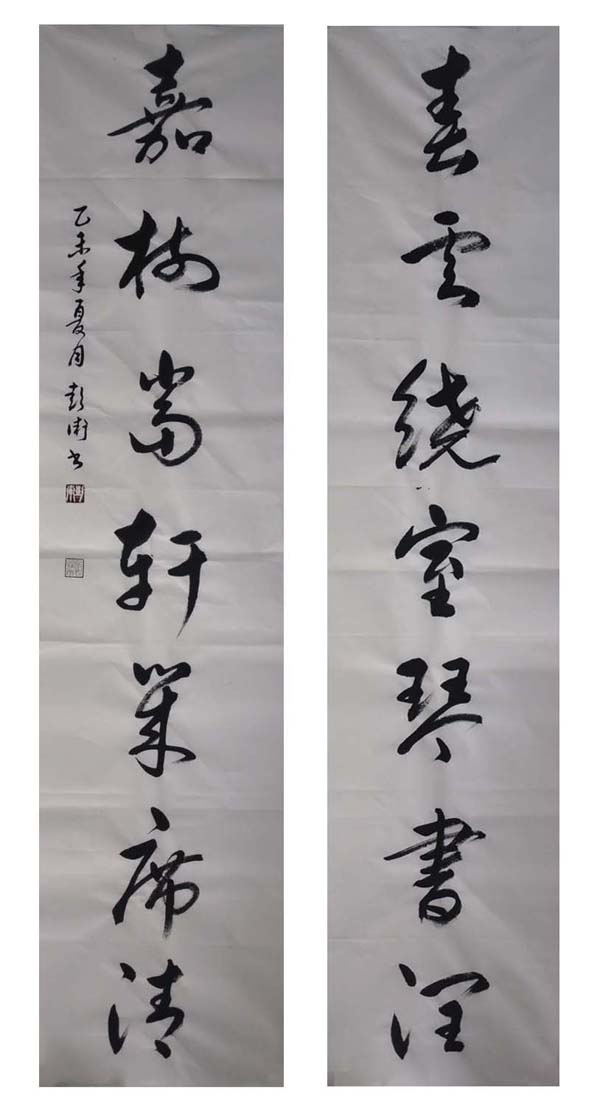 春云繞室琴書潤
嘉樹當軒幾席清
乙未年夏月彭書